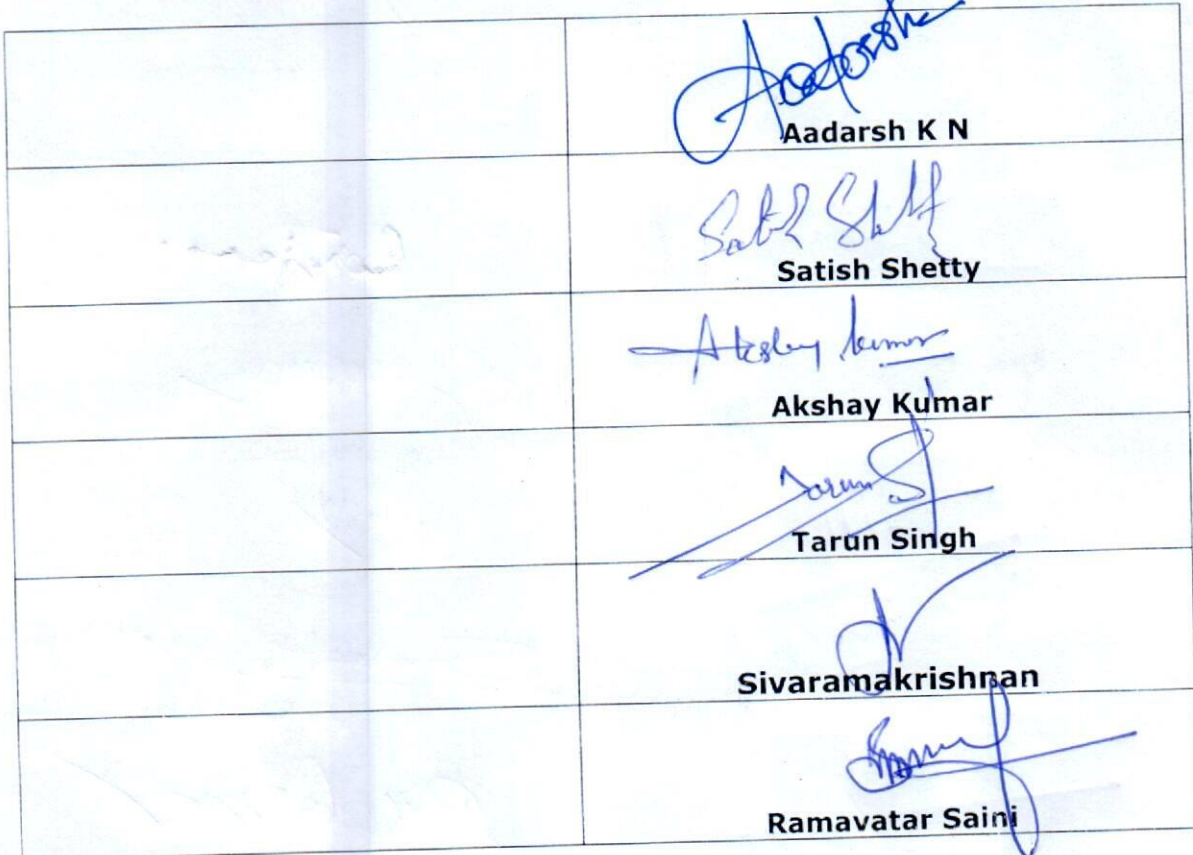 Aadarsha
Aadarsh K N
Satish Shetty
Satish Shetty
Akshay kumar
Akshay Kumar
Tarun
Tarun Singh
Sivaramakrishnan
Ramavatar Saini